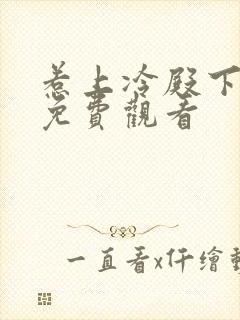 惹上冷殿下
免費觀看
一直看x仟繪動